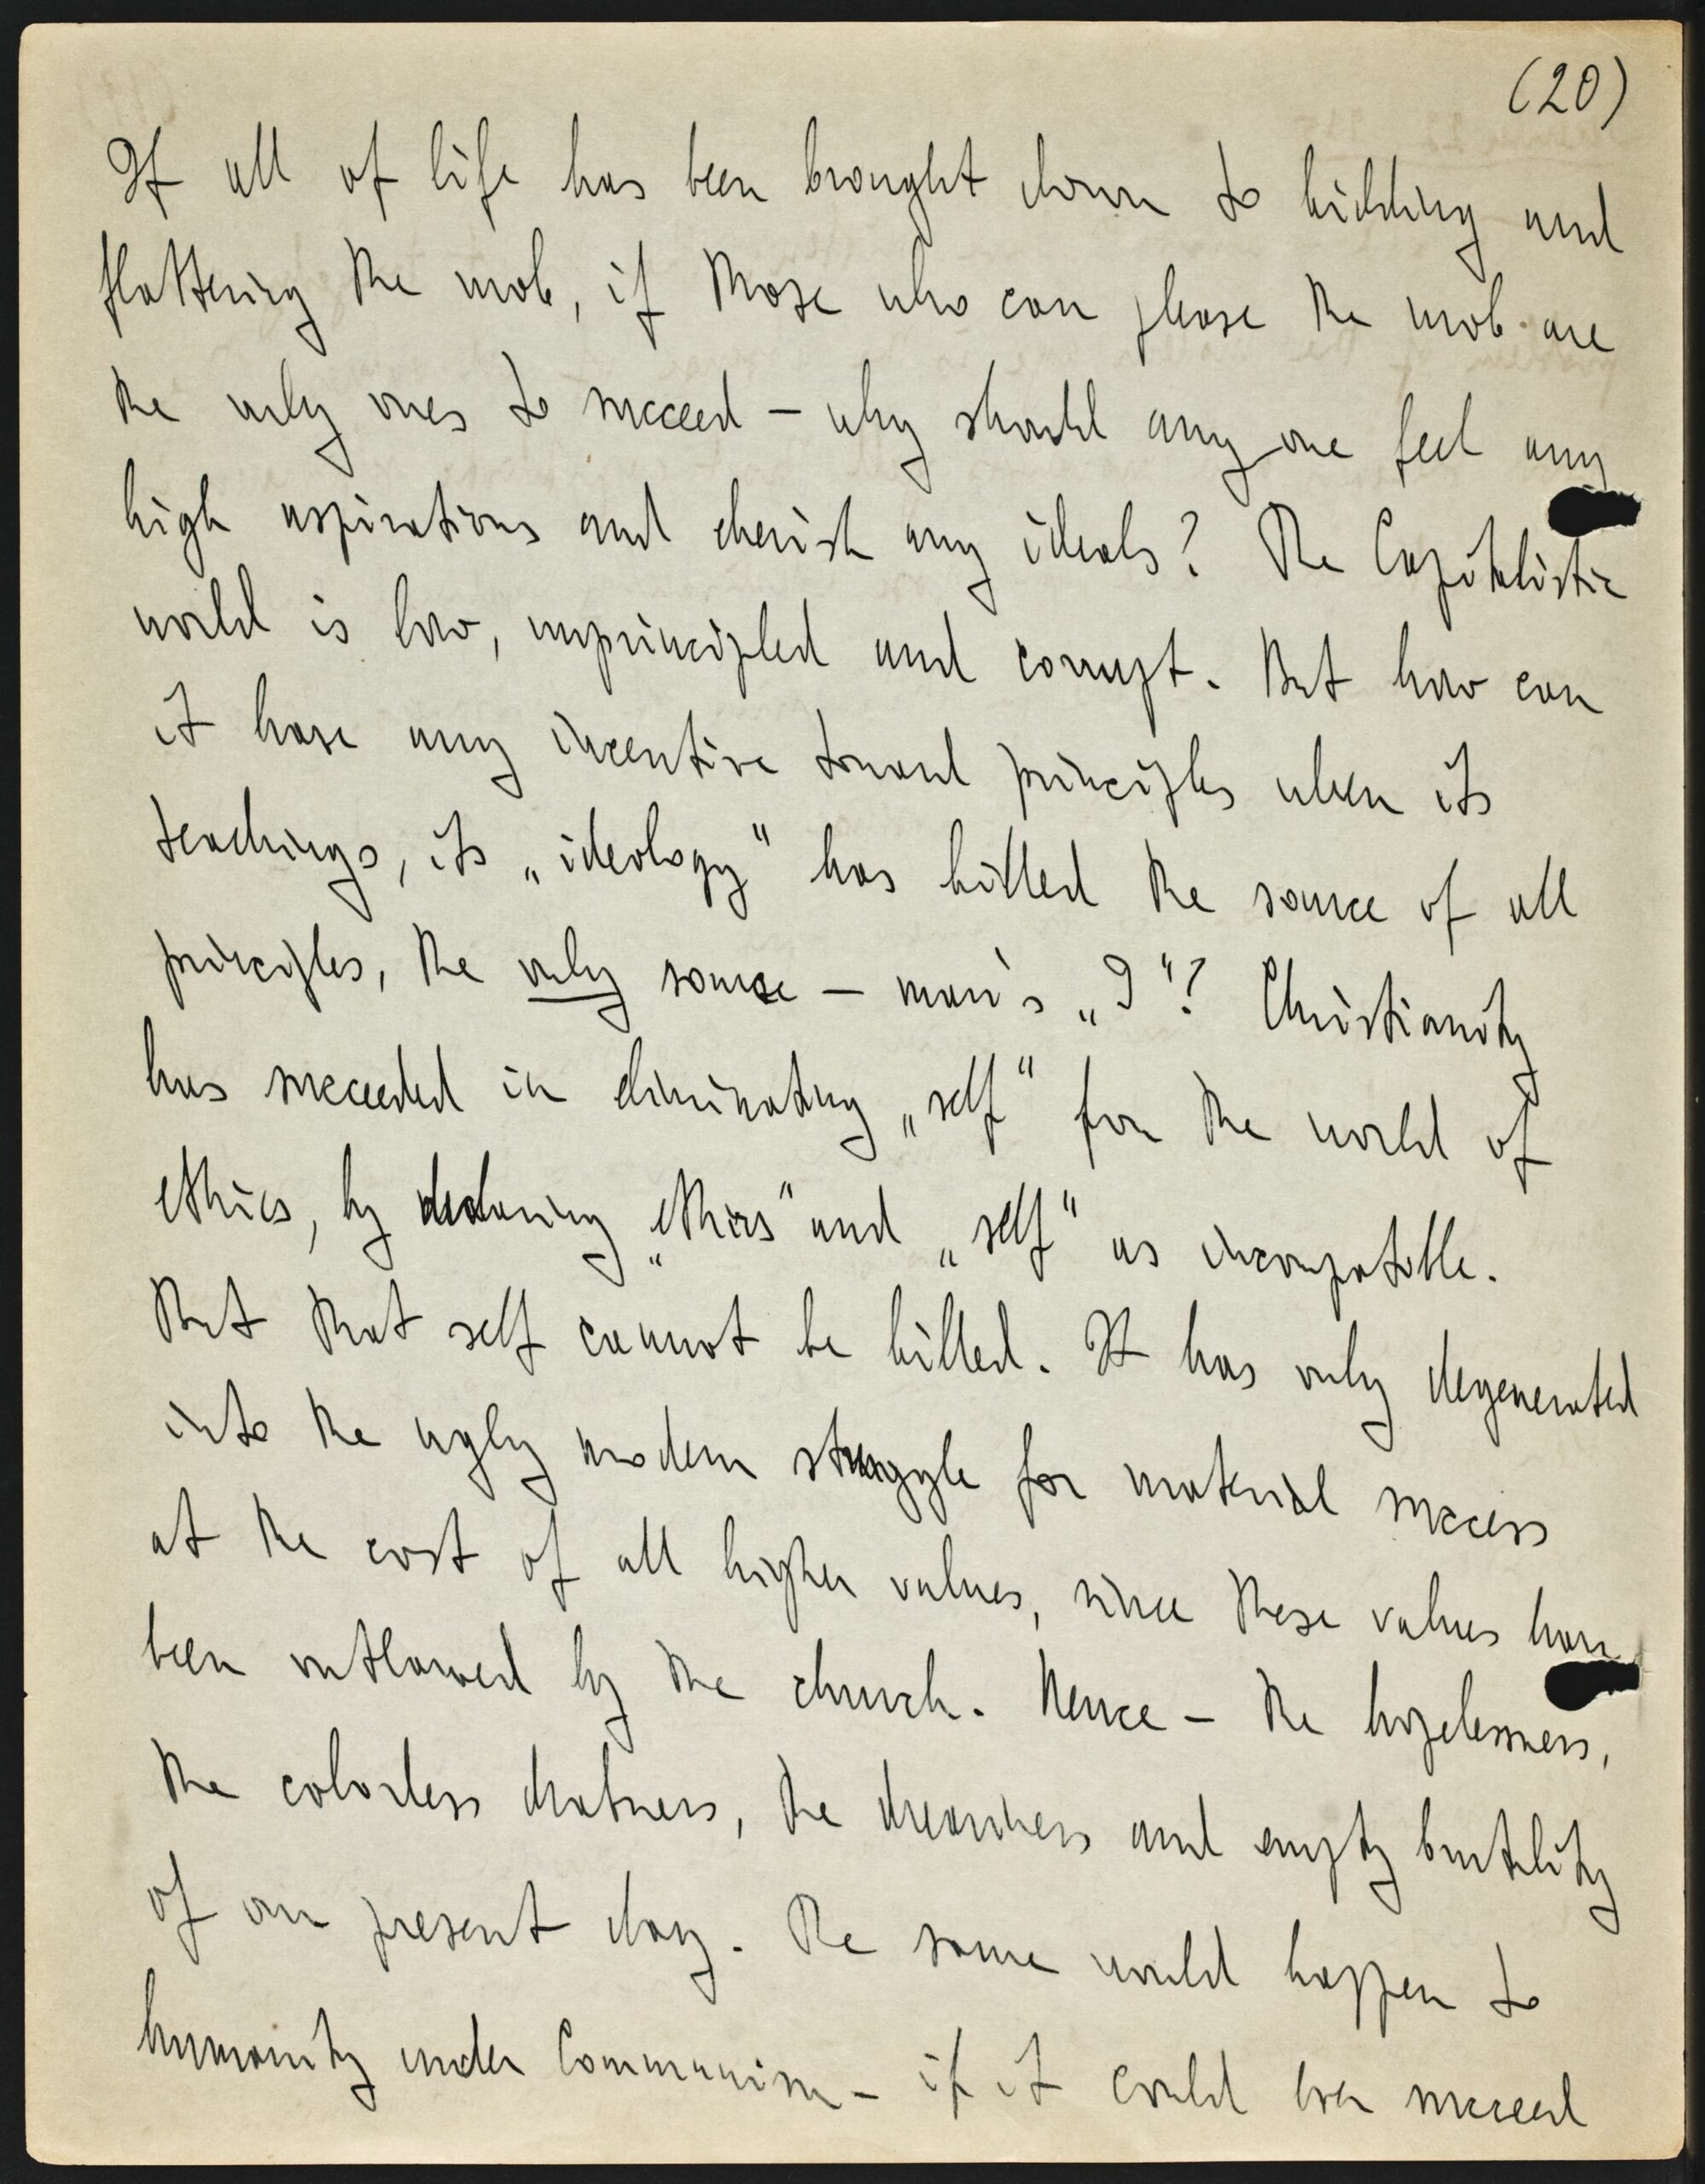 (20)
If all of life has been brought down to bidding and
flattering the mob, if those who can please the mob are
the only ones to succeed — why should any one feel any
high aspirations and cherish any ideals? The Capitalistic
world is low, unprincipled and corrupt. But how can
it have any incentive toward principles when its
teachings, its „ideology“ has killed the source of all
principles, the only source — man's „I“? Christianity
has succeeded in eliminating „self“ for the world of
ethics, by declaring „ethics“ and „self“ as incompatible.
But that self cannot be killed. It has only degenerated
into the ugly modern struggle for material success
at the cost of all higher values, since these values have
been outlawed by the church. Hence — the hopelessness,
the colorless drabness, the dreariness and empty brutality
of our present day. The same would happen to
humanity under Communism — if it could ever succeed